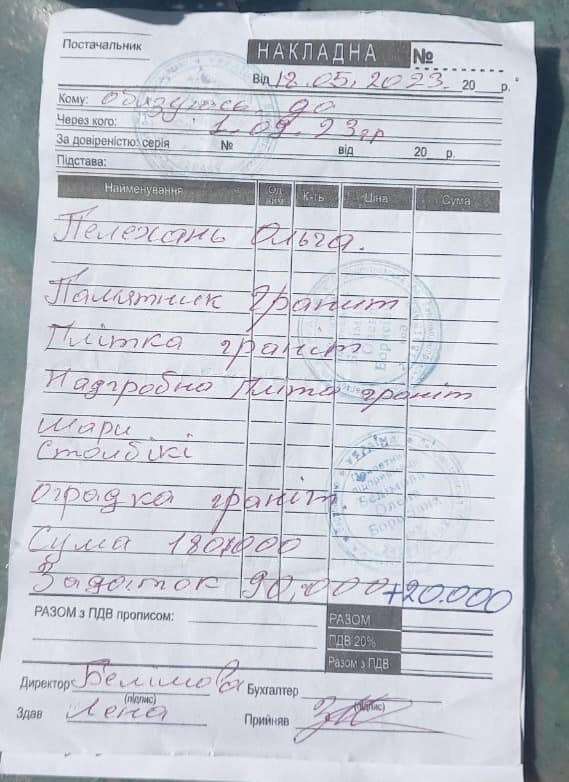 Постачальник
НАКЛАДНА №
Від 12.05.2023. 20 р.
Кому: обязуюсь до
Через кого: 1.09.23гр
За довіреністю: серія № від 20 р.
Підстава:
Найменування Од. вим. К-ть Ціна Сума
Пелехань Ольга.
Памятник граніт
Плітка граніт
Надгробна Пліта граніт
Шари
Столбікі
оградка граніт
Сума 180000
Задаток 90.000 +20.000
РАЗОМ з ПДВ прописом: РАЗОМ
ПДВ 20%
Разом з ПДВ
Директор Белімова Бухгалтер
(підпис) (підпис)
Здав Лена Прийняв